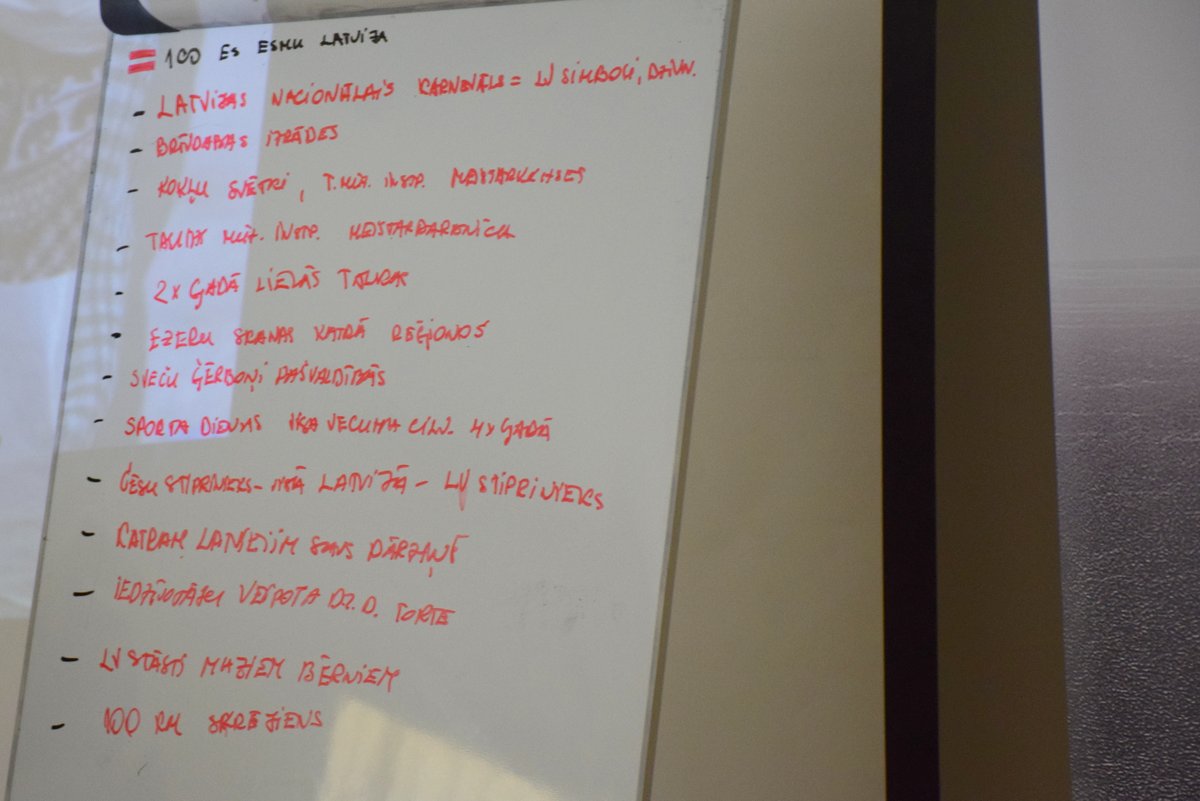 = 100 ES ESMU LATVIJA
- LATVIJAS NACIONĀLAIS KARNEVĀLS = LV SIMBOLI, DZĪVN.
- BRĪVDABAS IZRĀDES
- KOKĻU SVĒTKI, T.MŪZ. INSTR. MEISTARKLASES
- TAUTAS MŪZ. INSTR. MEISTARDARBNĪCU
- 2x GADĀ LIELĀS TALKAS
- EZERU SKAŅAS KATRĀ REĢIONOS
- SVEČU ĢĒRBOŅI PAŠVALDĪBĀS
- SPORTA DIENAS VISA VECUMA CILV. 4x GADĀ
- CĒSU STIPRINIEKS - VISĀ LATVIJĀ - LV STIPRINIEKS
- KATRAM LATVIETIM SAVS DĀRZIŅŠ
- IEDZĪVOTĀJU VEIDOTA DZ.D. TORTE
- LV STĀSTI MAZIEM BĒRNIEM
- 100 KM SKRĒJIENS